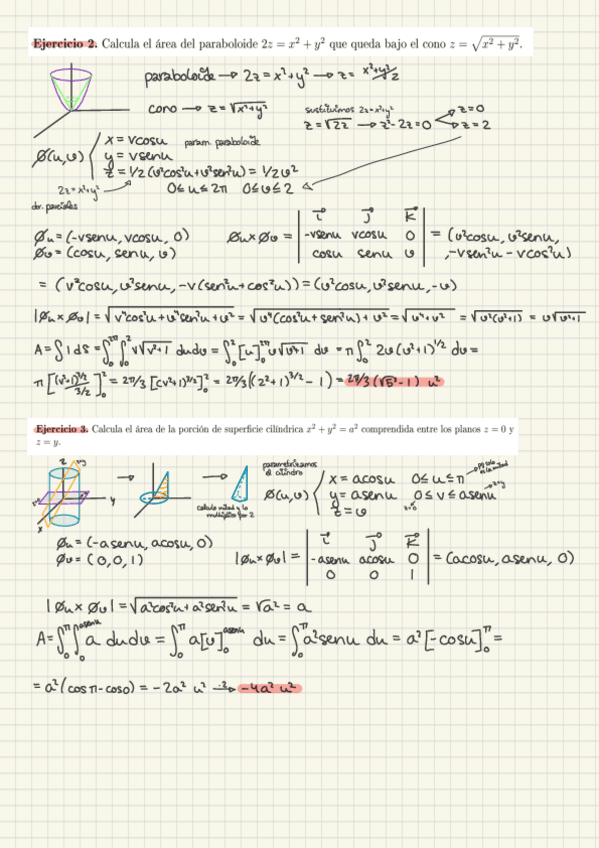 Ejercicio 2. Calcula el área del paraboloide 2z = x² + y² que queda bajo el cono z = √(x² + y²).
paraboloide → 2z = x²+y² → z = x²+y²/2
cono → z = √(x²+y²)
sustituimos 2z=x²+y²
z = √2z → z²-2z=0
z=0
z=2
Ø(u,v) { x = vcosu
param. paraboloide
y = vsenu
z = 1/2 (v²cos²u+v²sen²u) = 1/2v²
2z=x²+y²
0≤u≤2π 0≤v≤2
der. parciales
Øu = (-vsenu, vcosu, 0)
Øv = (cosu, senu, v)
Øu×Øv = | i j k |
-vsenu vcosu 0
cosu senu v
= (v²cosu, v²senu,
, -vsen²u - vcos²u)
= (v²cosu, v²senu, -v(sen²u+cos²u)) = (v²cosu, v²senu, -v)
|Øu×Øv| = √(v⁴cos²u+v⁴sen²u+v²) = √(v⁴(cos²u+sen²u)+v²) = √(v⁴+v²) = √(v²(v²+1)) = v√(v²+1)
A = ∫1dS = ∫₀^2π ∫₀² v√(v²+1) dudv = ∫₀² [u]₀^2π v√(v²+1) dv = π∫₀² 2v(v²+1)^1/2 dv =
π[(v²+1)^3/2 / 3/2]₀² = 2π/3 [(v²+1)^3/2]₀² = 2π/3((2²+1)^3/2 - 1) = 2π/3(√5³-1) u²
Ejercicio 3. Calcula el área de la porción de superficie cilíndrica x² + y² = a² comprendida entre los planos z = 0 y
z = y.
z
y
x
calculo mitad y lo
multiplico por 2
parametrizamos
el cilindro
Ø(u,v) { x = acosu 0≤u≤π
y = asenu 0≤v≤asenu
z=y
z = v
z=0
Øu = (-asenu, acosu, 0)
Øv = (0,0,1)
|Øu×Øv| = | i j k |
-asenu acosu 0
0 0 1
= (acosu, asenu, 0)
|Øu×Øv| = √(a²cos²u+a²sen²u) = √a² = a
A = ∫₀^π ∫₀^asenu a dudv = ∫₀^π a[v]₀^asenu du = ∫₀^π a²senu du = a²[-cosu]₀^π =
= a²(cosπ-cos0) = -2a² u² ·2→ -4a² u²